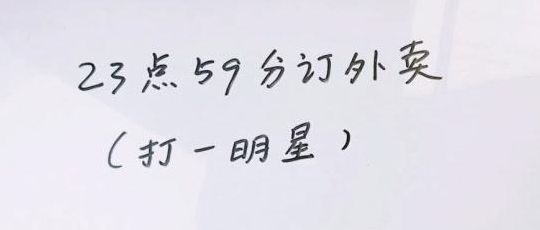 23点59分订外卖
(打一明星)